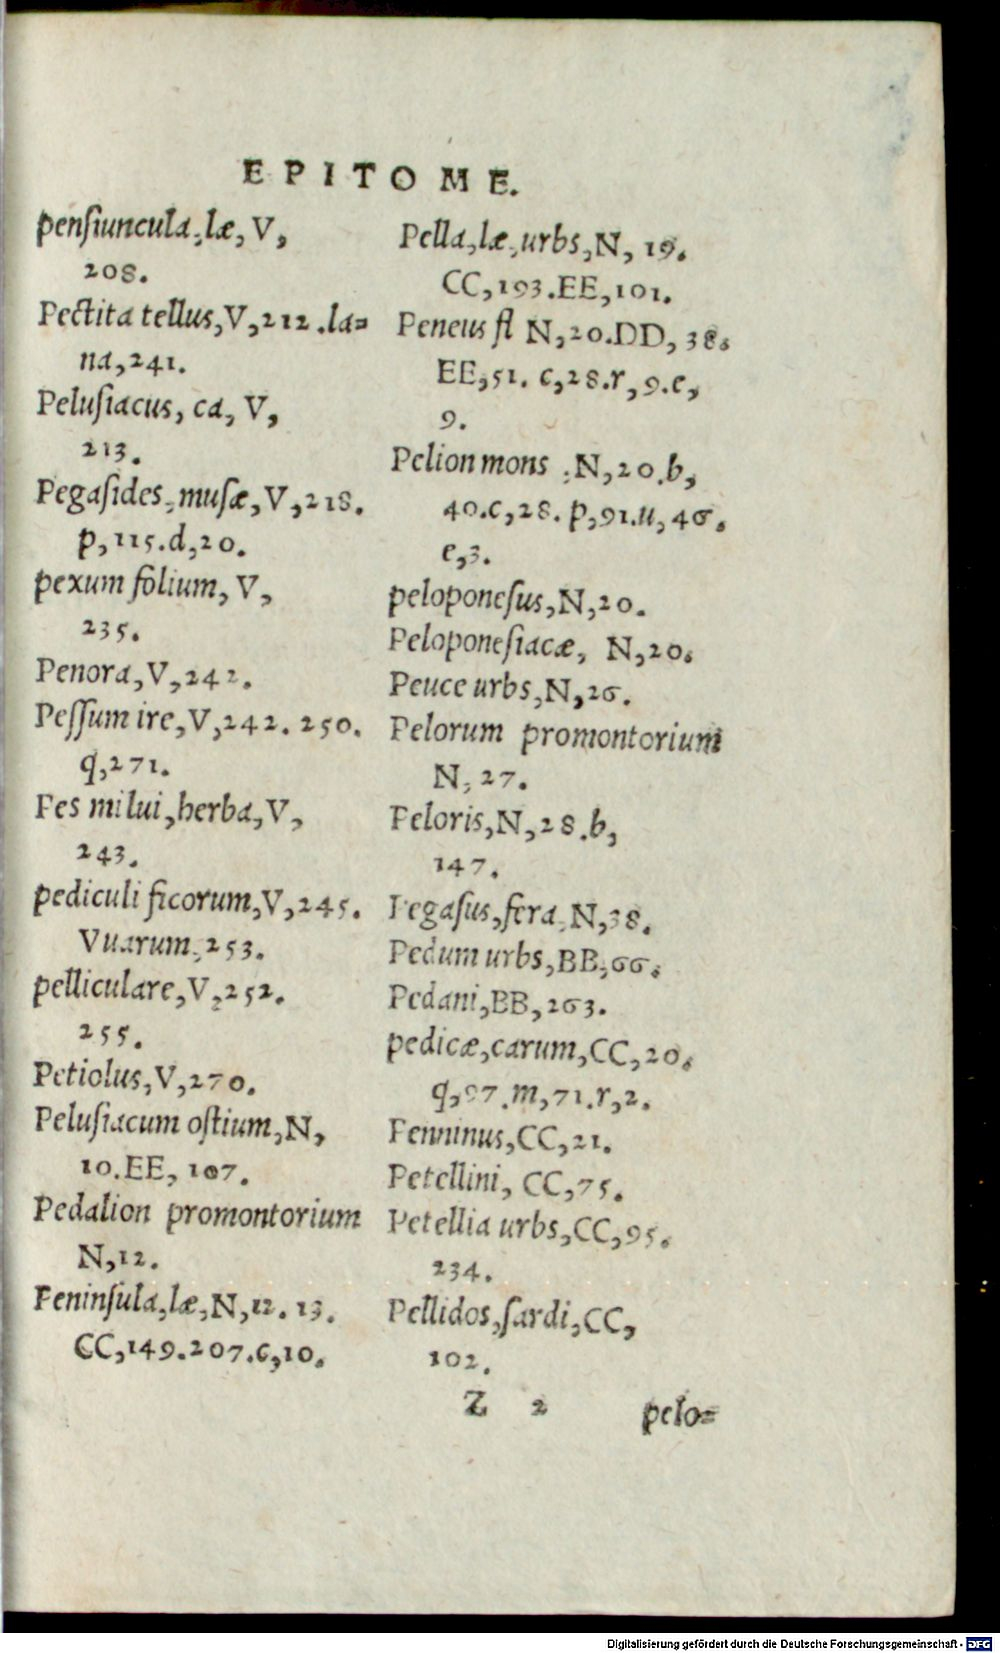 EPITOME.
penſiuncula, læ, V,
208.
Pectita tellus, V, 212. la=
na, 241.
Peluſiacus, ca, V,
213.
Pegaſides, muſæ, V, 218.
p, 115. d, 20.
pexum folium, V,
235.
Penora, V, 242.
Peſſum ire, V, 242. 250.
q, 271.
Pes milui, herba, V,
243.
pediculi ficorum, V, 245.
Vuarum, 253.
pelliculare, V, 252.
255.
Petiolus, V, 270.
Peluſiacum oſtium, N,
10. EE, 107.
Pedalion promontorium
N, 12.
Peninſula, læ, N, 12. 13.
CC, 149. 207. c, 10.
Pella, læ, urbs, N, 19.
CC, 193. EE, 101.
Peneus fl N, 20. DD, 38.
EE, 51. c, 28. r, 9. e,
9.
Pelion mons, N, 20. b,
40. c, 28. p, 91. u, 46.
e, 3.
peloponeſus, N, 20.
Peloponeſiacæ, N, 20.
Peuce urbs, N, 26.
Pelorum promontorium
N, 27.
Peloris, N, 28. b,
147.
Pegaſus, fera, N, 38.
Pedum urbs, BB, 66.
Pedani, BB, 263.
pedicæ, carum, CC, 20.
q, 97. m, 71. r, 2.
Penninus, CC, 21.
Petellini, CC, 75.
Petellia urbs, CC, 95.
234.
Pellidos, ſardi, CC,
102.
Z 2 pelo=
Digitalisierung gefördert durch die Deutsche Forschungsgemeinschaft - DFG